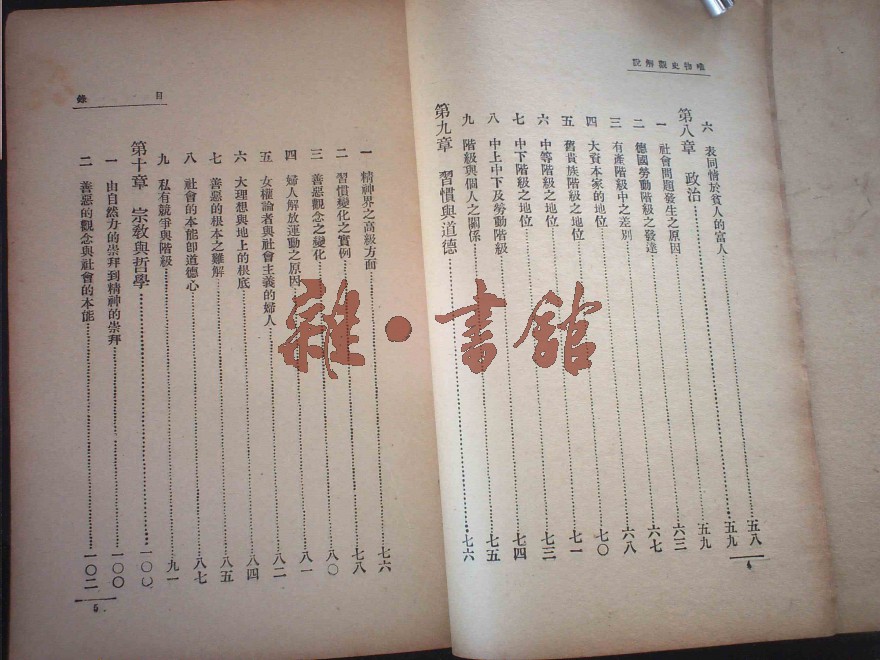 唯物史觀解說
六 表同情於貧人的富人 五八
第八章 政治 五九
一 社會問題發生之原因 五九
二 德國勞動階級之發達 六三
三 有產階級中之差別 六七
四 大資本家的地位 六八
五 舊貴族階級之地位 七〇
六 中等階級之地位 七一
七 中下階級之地位 七三
八 中上中下及勞動階級 七四
九 階級與個人之關係 七五
第九章 習慣與道德 七六
4
目錄
一 精神界之高級方面 七六
二 習慣變化之實例 七八
三 善惡觀念之變化 八〇
四 婦人解放運動之原因 八一
五 女權論者與社會主義的婦人 八二
六 大理想與地上的根底 八四
七 善惡的根本之難解 八五
八 社會的本能卽道德心 八七
九 私有競爭與階級 九一
第十章 宗教與哲學 一〇〇
一 由自然力的崇拜到精神的崇拜 一〇〇
二 善惡的觀念與社會的本能 一〇二
5
雜·書館